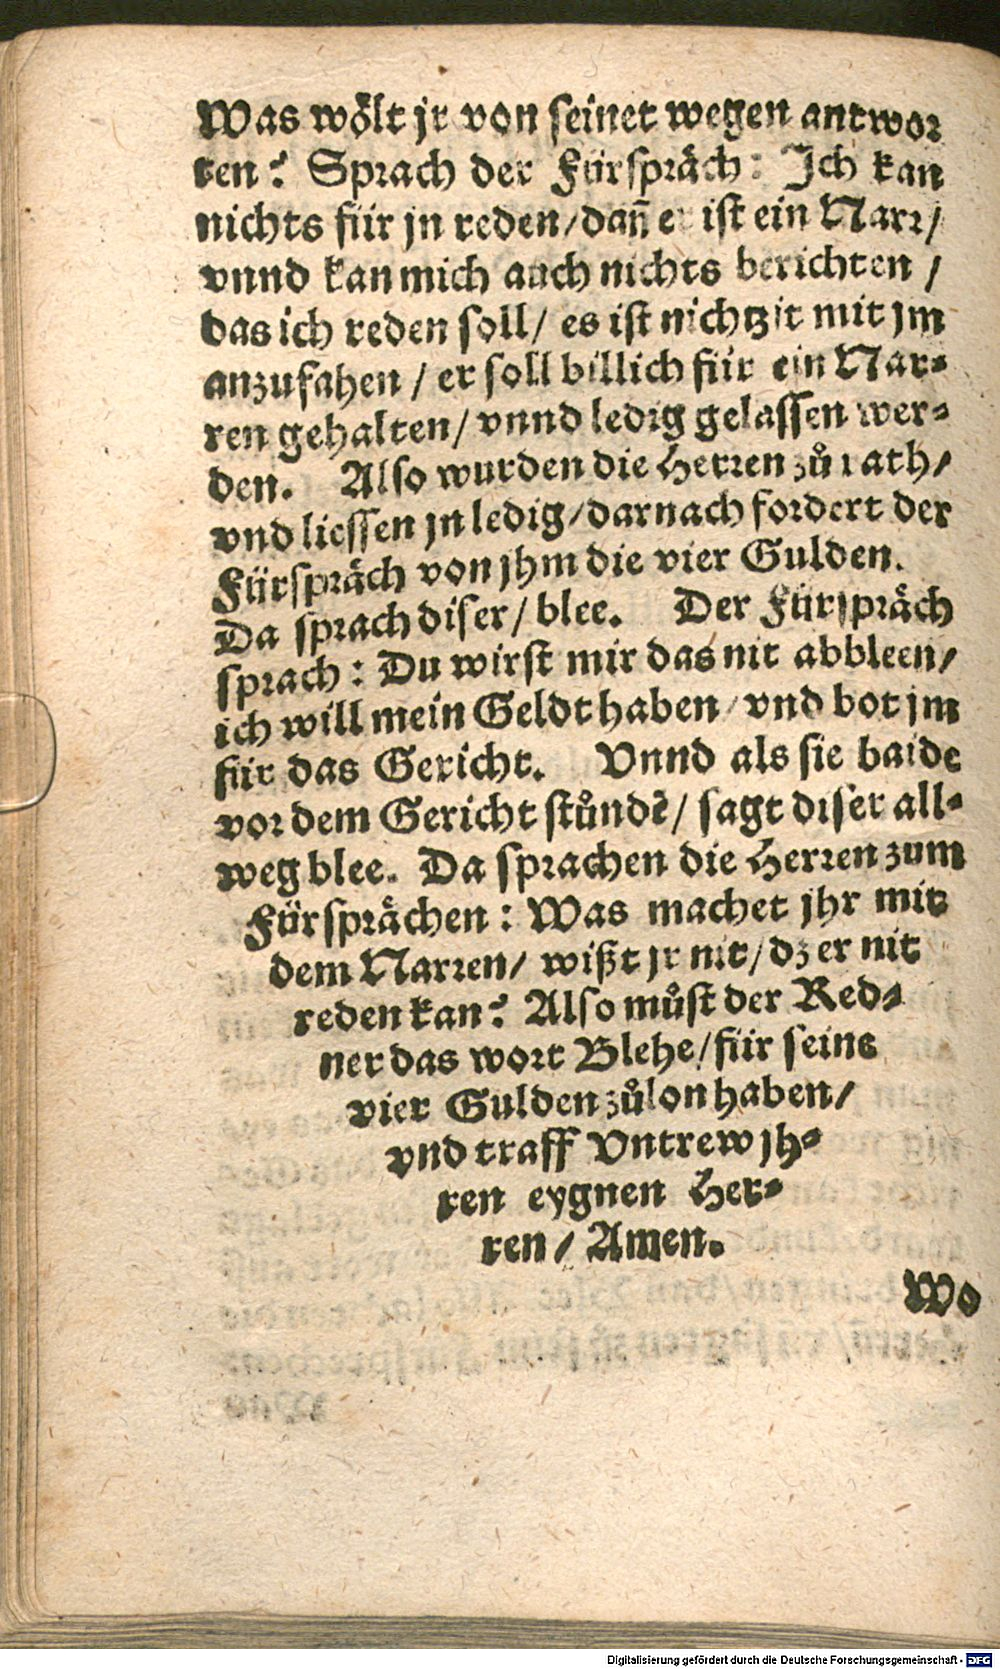 Was wölt jr von seinet wegen antwor
ten? Sprach der Fürspräch: Ich kan
nichts für jn reden/ dañ er ist ein Narr/
vnnd kan mich auch nichts berichten /
das ich reden soll/ es ist nichtzit mit jm
anzufahen / er soll billich für ein Nar-
ren gehalten/ vnnd ledig gelassen wer-
den. Also wurden die Herren zů rath/
vnd liessen jn ledig/ darnach fordert der
Fürspräch von jhm die vier Gulden.
Da sprach diser/ blee. Der Fürspräch
sprach: Du wirst mir das nit abbleen/
ich will mein Geldt haben/ vnd bot jm
für das Gericht. Vnnd als sie baide
vor dem Gericht stůndē/ sagt diser all-
weg blee. Da sprachen die Herren zum
Fürsprächen: Was machet jhr mit
dem Narren/ wißt jr nit/ dz er nit
reden kan? Also můst der Red-
ner das wort Blehe/ für seine
vier Gulden zůlon haben/
vnd traff Vntrew jh-
ren eygnen Her-
ren/ Amen.
Wo
Digitalisierung gefördert durch die Deutsche Forschungsgemeinschaft - DFG